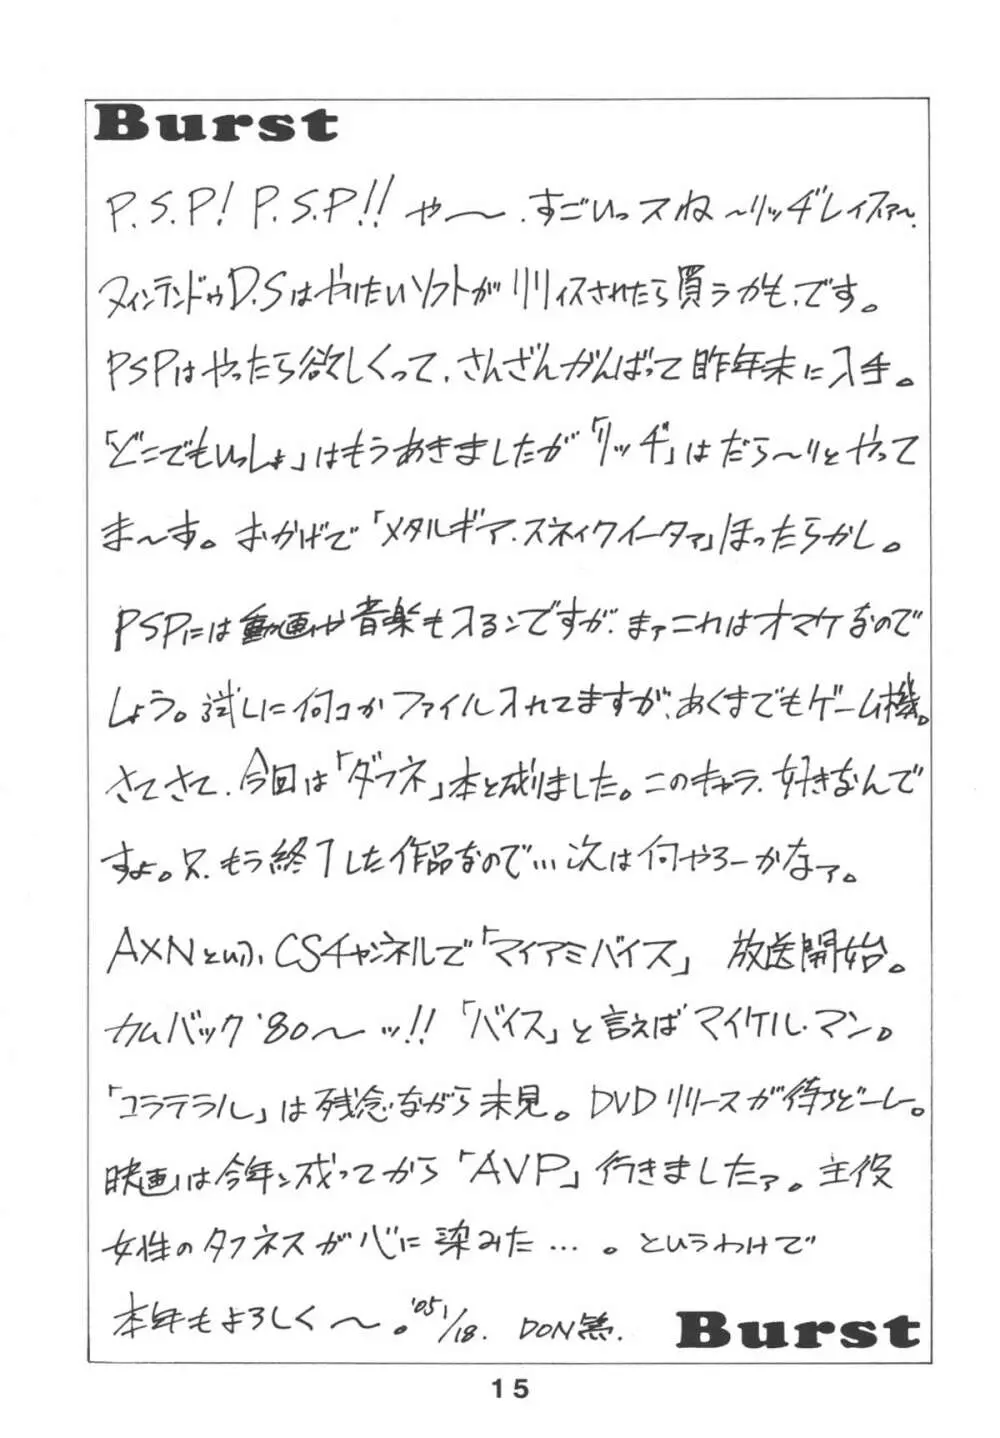 Burst
P.S.P! P.S.P!! や〜、すごいっスね〜リッヂレイスァ〜、
ヌィンテンドゥD.Sはやりたいソフトがリリィスされたら買うかも、です。
PSPはやったら欲しくって、さんざんがんばって昨年末に入手。
「どこでもいっしょ」はもうあきましたが「リッヂ」はだら〜りとやって
ま〜す。おかげで「メタルギア・スネイクイータァ」ほったらかし。
PSPには動画や音楽も入るンですが、まァこれはオマケなので
しょう。試しに何コかファイル入れてますが、あくまでもゲーム機。
さてさて、今回は「ダフネ」本と成りました。このキャラ、好きなんで
すよ。只、もう終了した作品なので…次は何やろーかなァ。
AXNといふ、CSチャンネルで「マイアミバイス」 放送開始。
カムバック'80〜ッ!! 「バイス」と言えばマイケル・マン。
「コラテラル」は残念ながら未見。DVDリリースが待ちどーし。
映画は今年ン成ってから「AVP」行きましたァ。主役
女性のタフネスが心に染みた…。というわけで
本年もよろしく〜。'05 1/18. DON
Burst
15